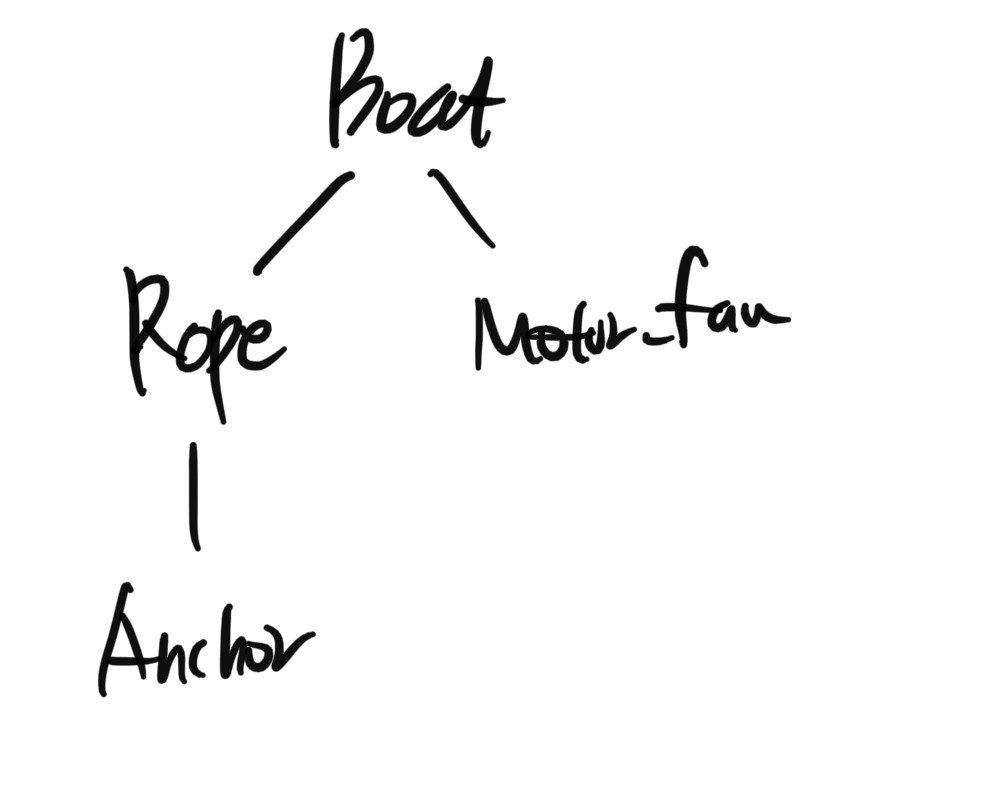 Boat
Rope
Motor_fan
Anchor